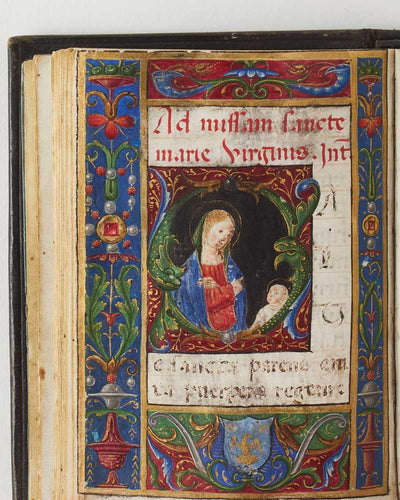 Ad missam sancte
marie Virginis. Int
S A
L
V
e sancta parens eni
xa puerpera regem